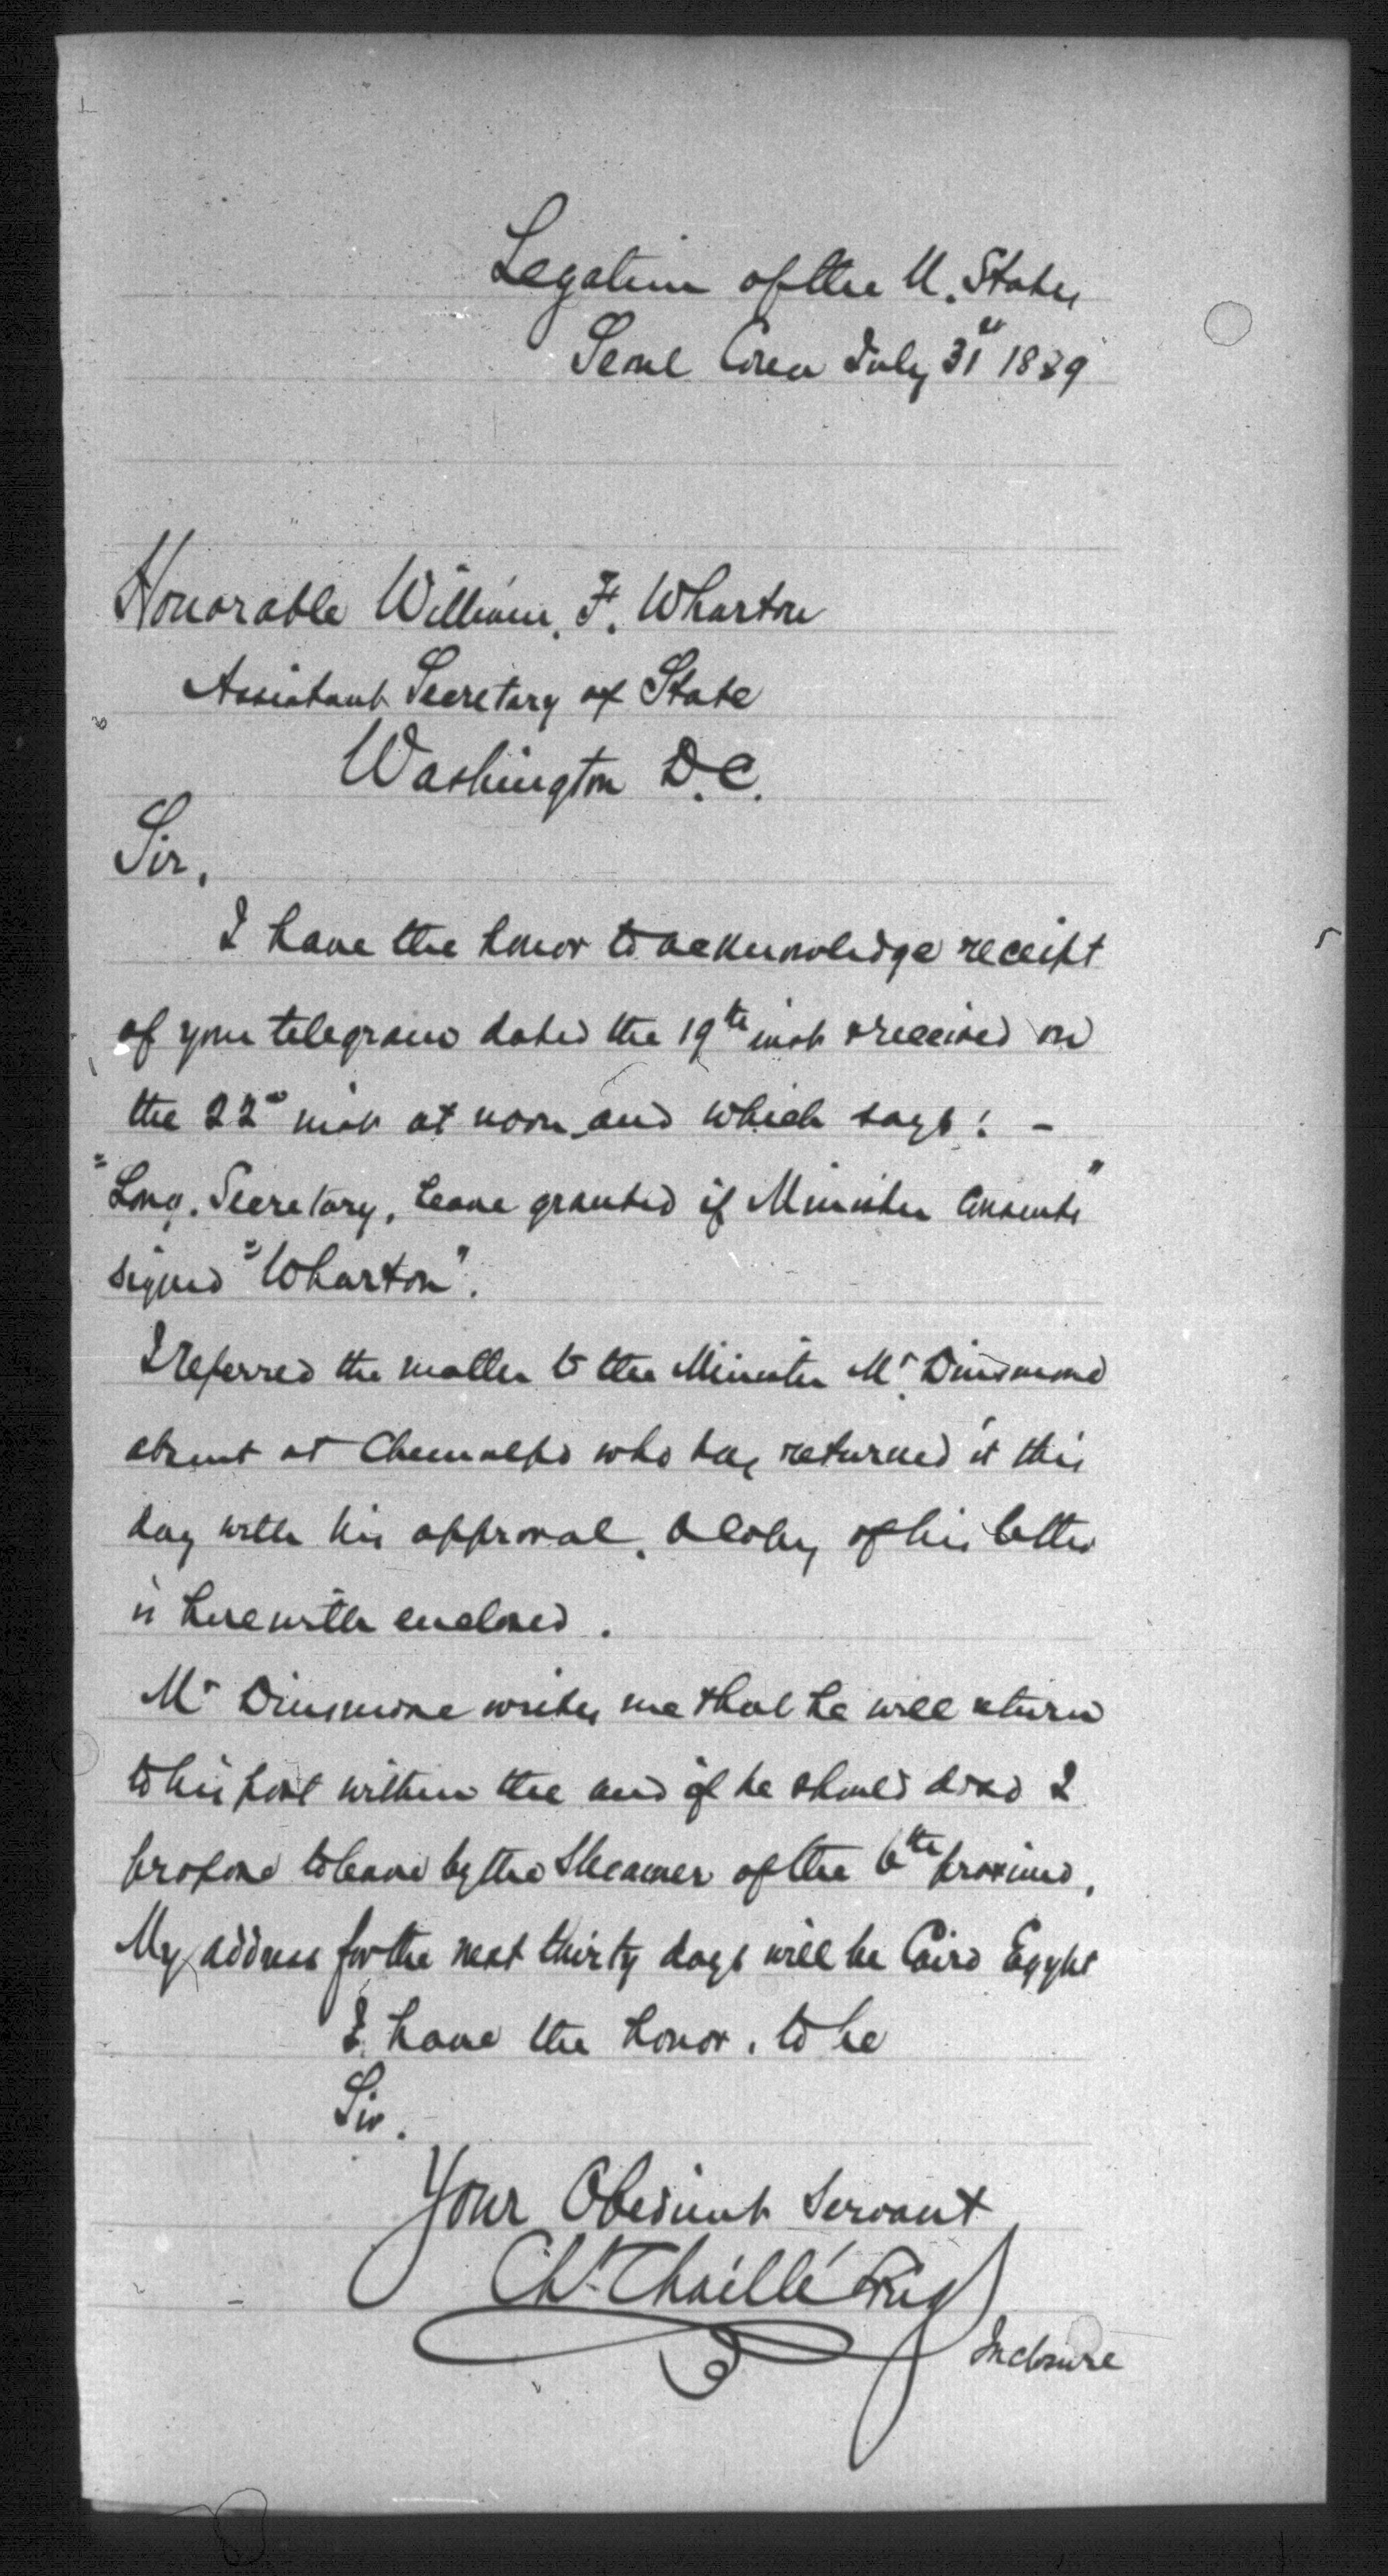 Legation of the U. States
Seoul Corea July 31st 1889
Honorable William. F. Wharton
Assistant Secretary of State
Washington D.C.
Sir,
I have the honor to acknowledge receipt
of your telegram dated the 19th inst & received on
the 22d inst at noon and which says: -
"Long. Secretary, leave granted if Minister consents"
signed "Wharton".
I referred the matter to the Minister Mr Dinsmore
absent at Chemulpo who has returned it this
day with his approval. A copy of his letter
is herewith enclosed.
Mr Dinsmore writes me that he will return
to his post within the and if he should do so I
propose to leave by the Steamer of the 6th proximo.
My address for the next thirty days will be Cairo Egypt
I have the honor. to be
Sir.
Your Obedient Servant
Ch. Chaillé Long
Inclosure